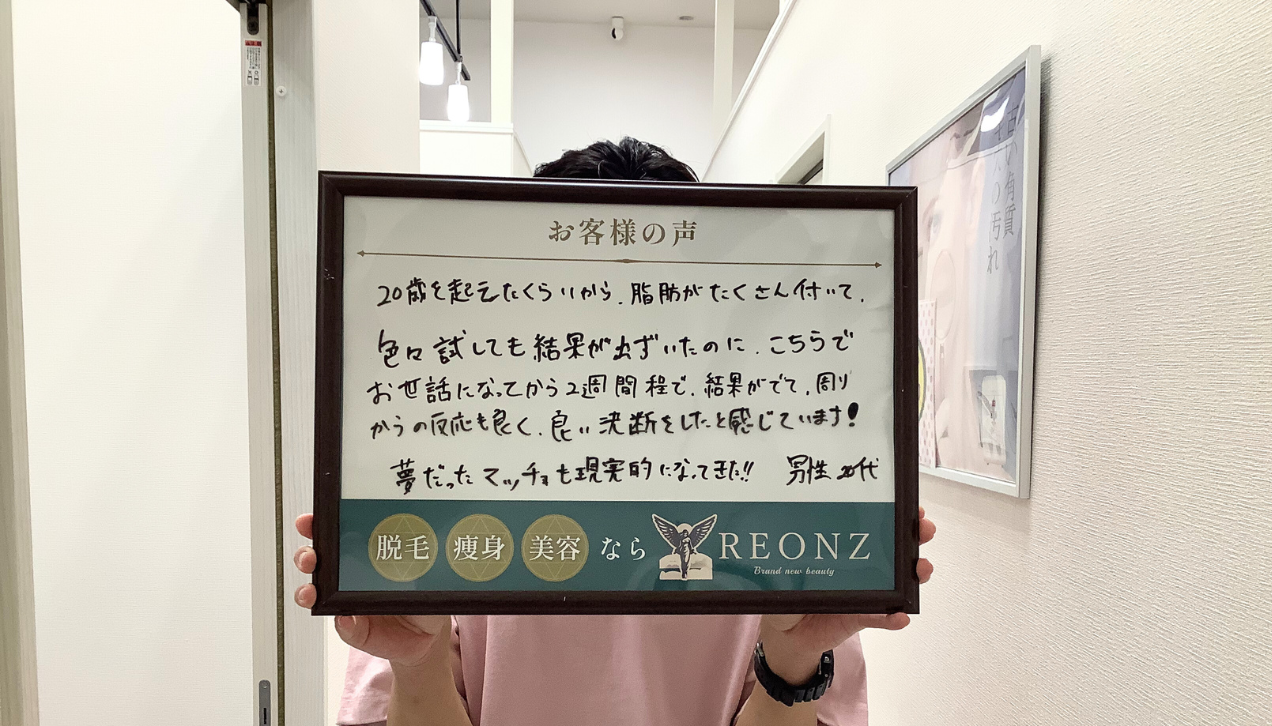 お客様の声
20歳を起えたくらいから、脂肪がたくさん付いて、
色々試しても結果が出ずいたのに、こちらで
お世話になってから2週間程で、結果がでて、周り
からの反応も良く、良い決断をしたと感じています!
夢だったマッチョも現実的になってきた!! 男性 20代
脱毛 痩身 美容 なら REONZ
Brand new beauty
角質
の汚れ